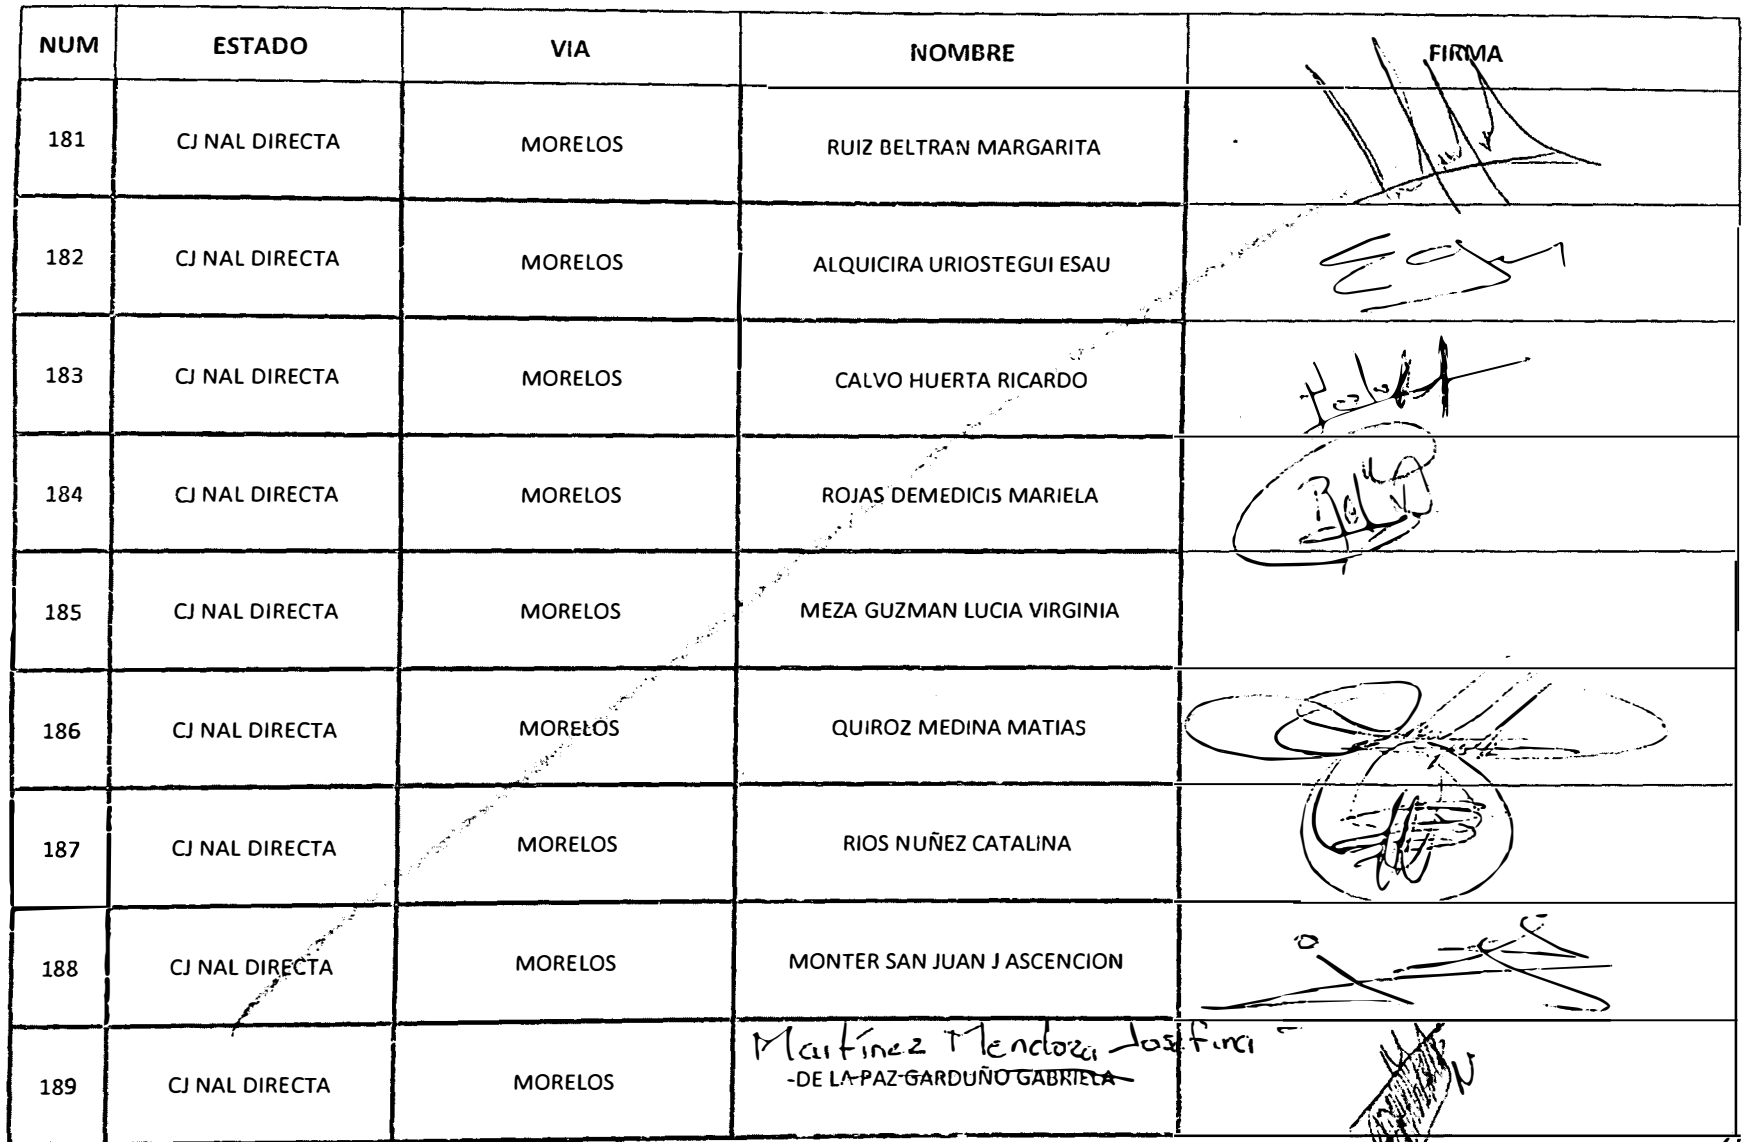 NUM ESTADO VIA NOMBRE FIRMA
181 CJ NAL DIRECTA MORELOS RUIZ BELTRAN MARGARITA
182 CJ NAL DIRECTA MORELOS ALQUICIRA URIOSTEGUI ESAU
183 CJ NAL DIRECTA MORELOS CALVO HUERTA RICARDO
184 CJ NAL DIRECTA MORELOS ROJAS DEMEDICIS MARIELA
185 CJ NAL DIRECTA MORELOS MEZA GUZMAN LUCIA VIRGINIA
186 CJ NAL DIRECTA MORELOS QUIROZ MEDINA MATIAS
187 CJ NAL DIRECTA MORELOS RIOS NUÑEZ CATALINA
188 CJ NAL DIRECTA MORELOS MONTER SAN JUAN J ASCENCION
Martínez Mendoza Josefina
189 CJ NAL DIRECTA MORELOS DE LA PAZ GARDUÑO GABRIELA